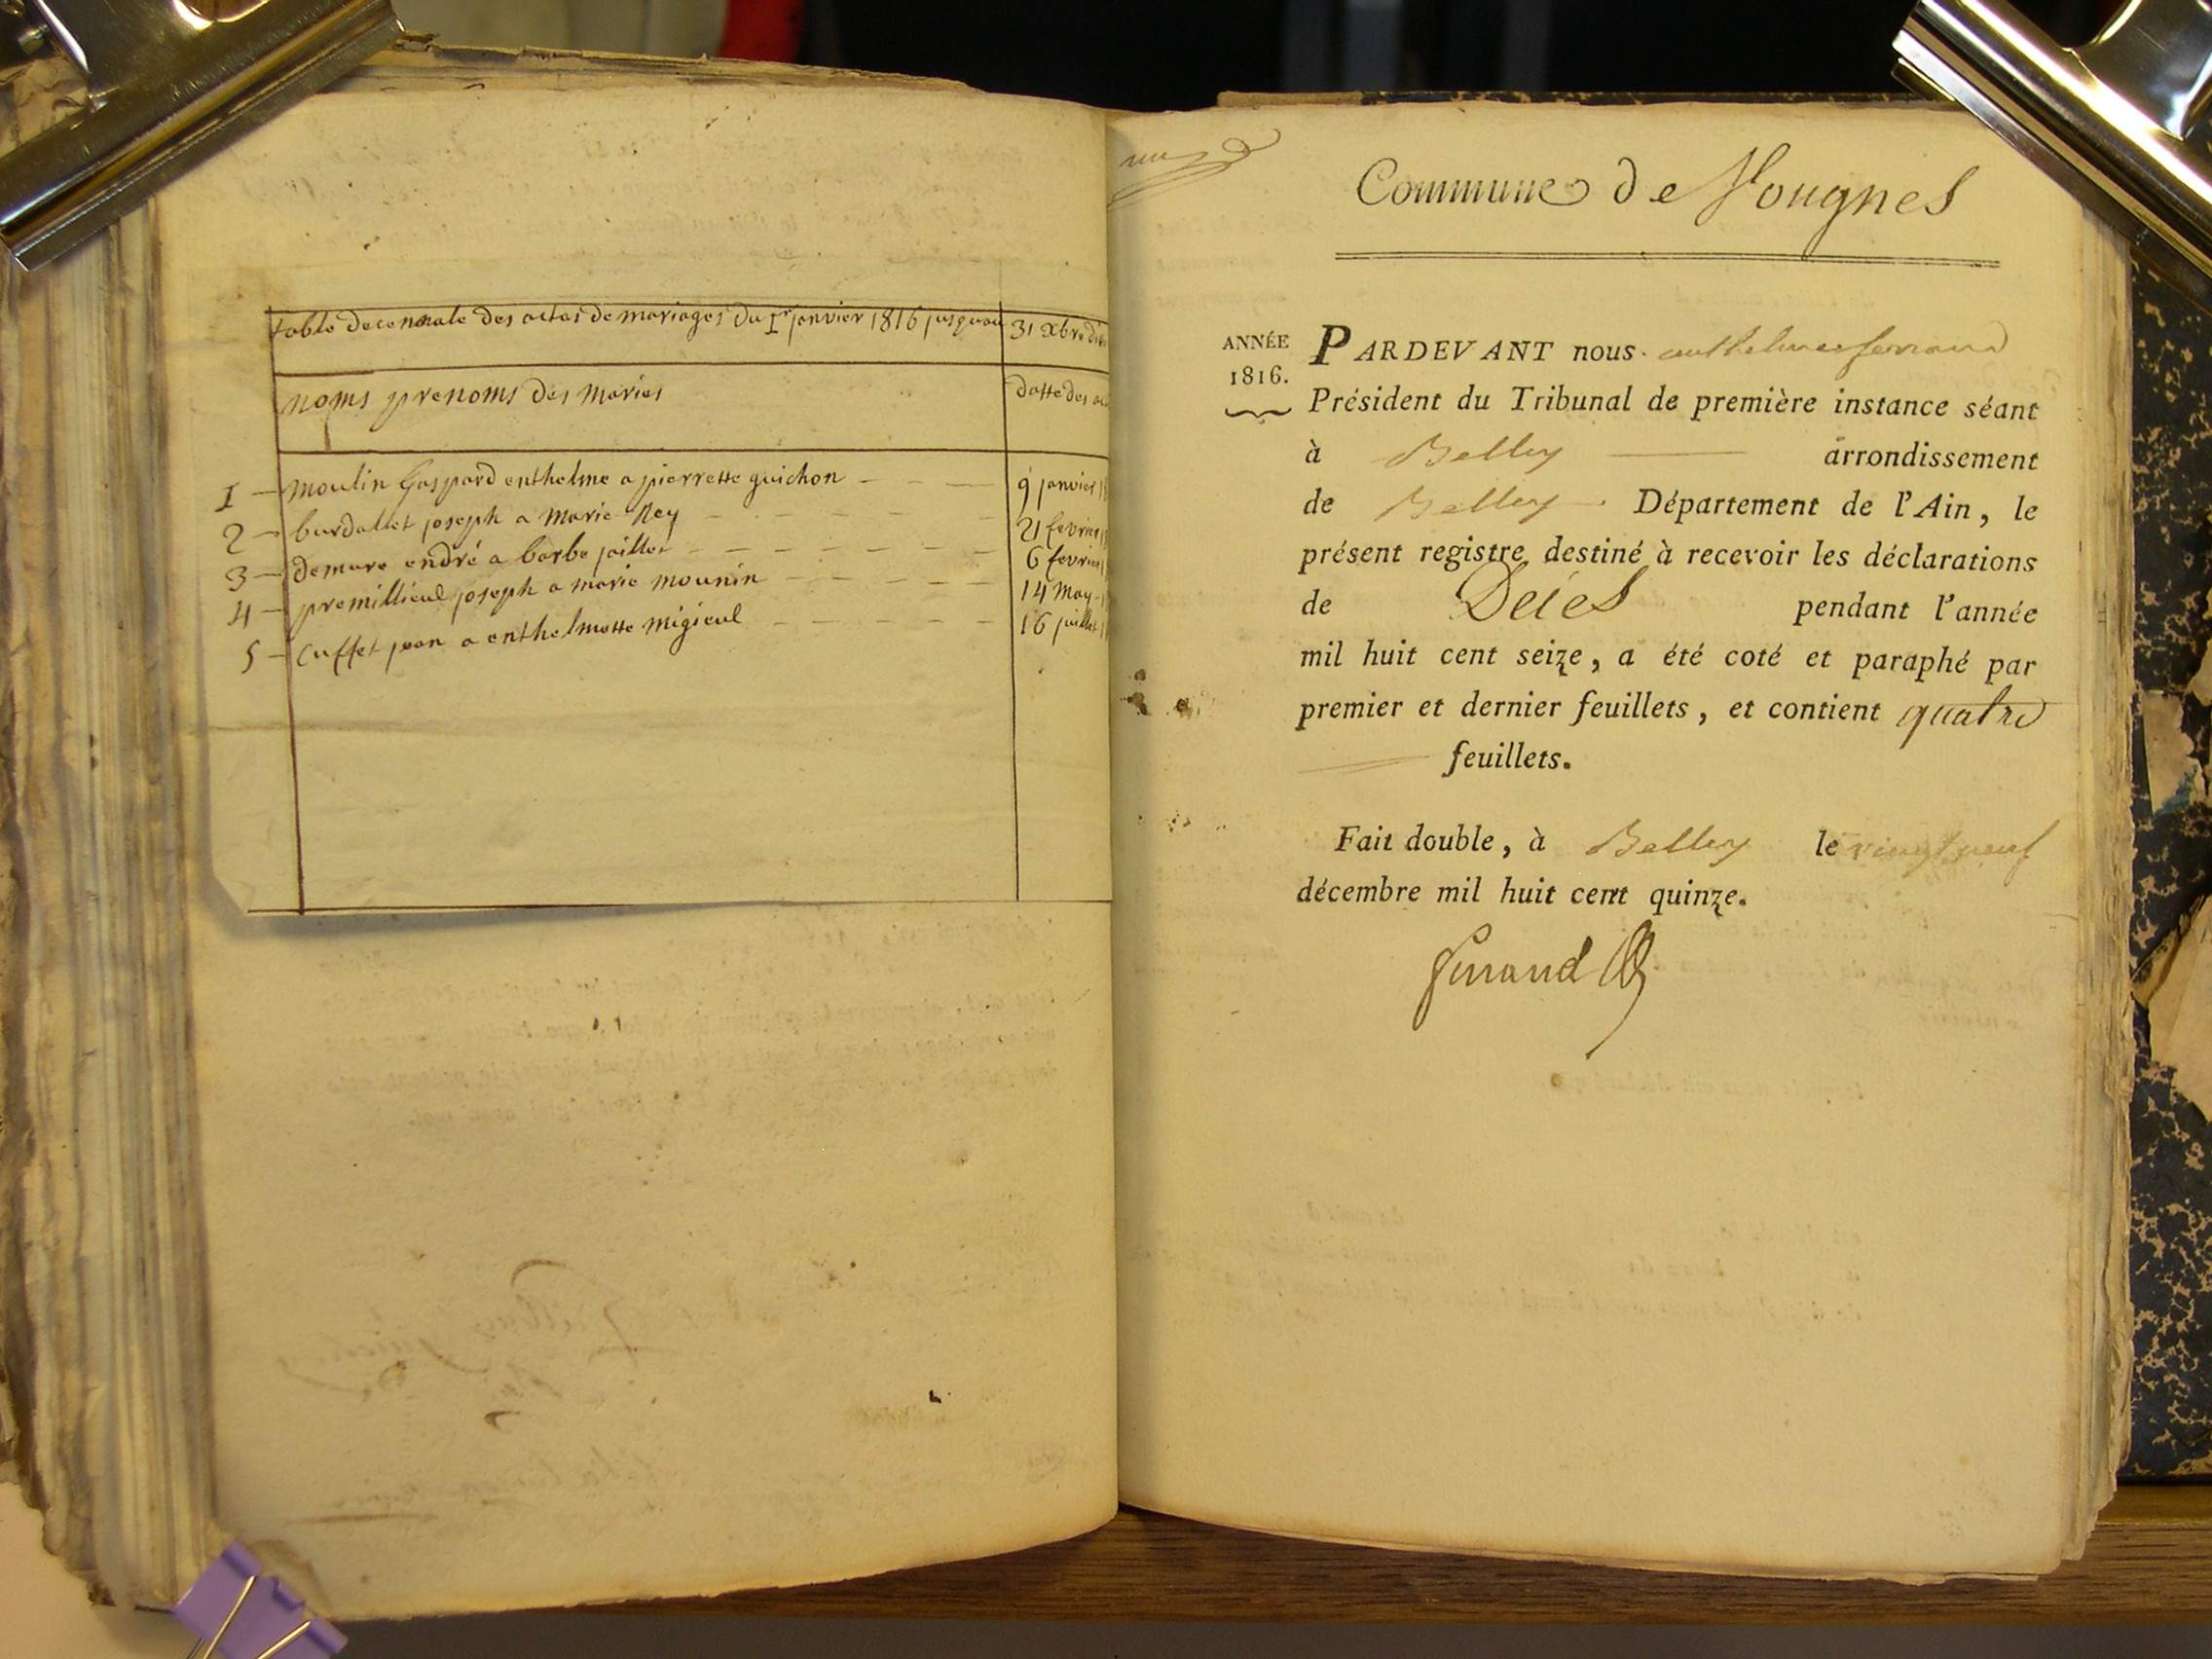 table decennale des actes de mariages du 1er janvier 1816 jusquau 31 xbre
noms prenoms des mariés
datte des
1 — moulin Gaspard enthelme a pierrette guichon - - - 9 janvier
2 — burdallet joseph a marie Rey - - - - - 21 fevrier
3 — demure endré a barbe jaillet - - - - - 6 fevrier
4 — premillieul joseph a marie mounin - - - - 14 may
5 — Cuffet jean a enthelmette migieul - - - - 16 juillet
Commune de Vougnes
ANNÉE
1816.
PARDEVANT nous anthelme ferrand
Président du Tribunal de première instance séant
à Belley — arrondissement
de Belley Département de l'Ain, le
présent registre destiné à recevoir les déclarations
de Deces pendant l'année
mil huit cent seize, a été coté et paraphé par
premier et dernier feuillets, et contient quatre
feuillets.
Fait double, à Belley le vingt neuf
décembre mil huit cent quinze.
ferrand